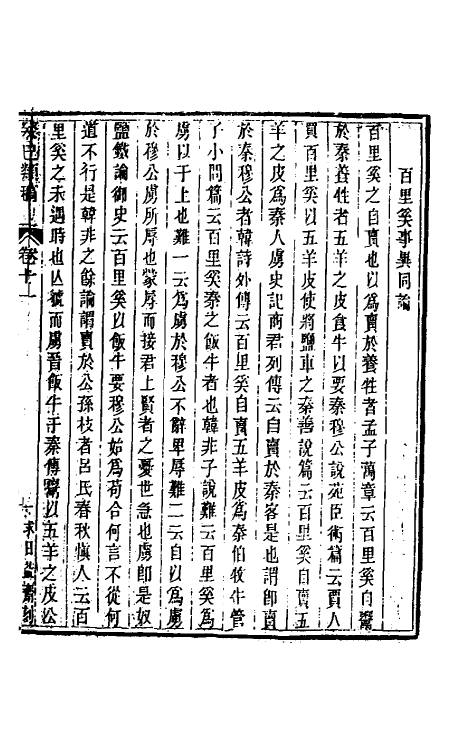 百里奚事異同論
百里奚之自賣也以為賣於養牲者孟子萬章云百里奚自鬻
於秦養牲者五羊之皮食牛以要秦穆公說苑臣術篇云賈人
買百里奚以五羊皮使將鹽車之秦善說篇云百里奚自賣五
羊之皮為秦人虜史記商君列傳云自賣於秦客是也謂卽賣
於秦穆公者韓詩外傳云百里奚自賣五羊皮為秦伯牧牛管
子小問篇云百里奚秦之飯牛者也韓非子說難云百里奚為
虜以干上也難一云為虜於穆公不辭卑辱難二云自以為虜
於穆公虜所辱也蒙辱而接君上賢者之憂世急也虜卽是奴
鹽鐵論御史云百里奚以飯牛要穆公始為苟合何言不從何
道不行是韓非之餘論謂賣於公孫枝者呂氏春秋慎人云百
里奚之未遇時也亾虢而虜晉飯牛于秦傳鬻以五羊之皮公
癸巳類稿 卷十一 求日益齋刻